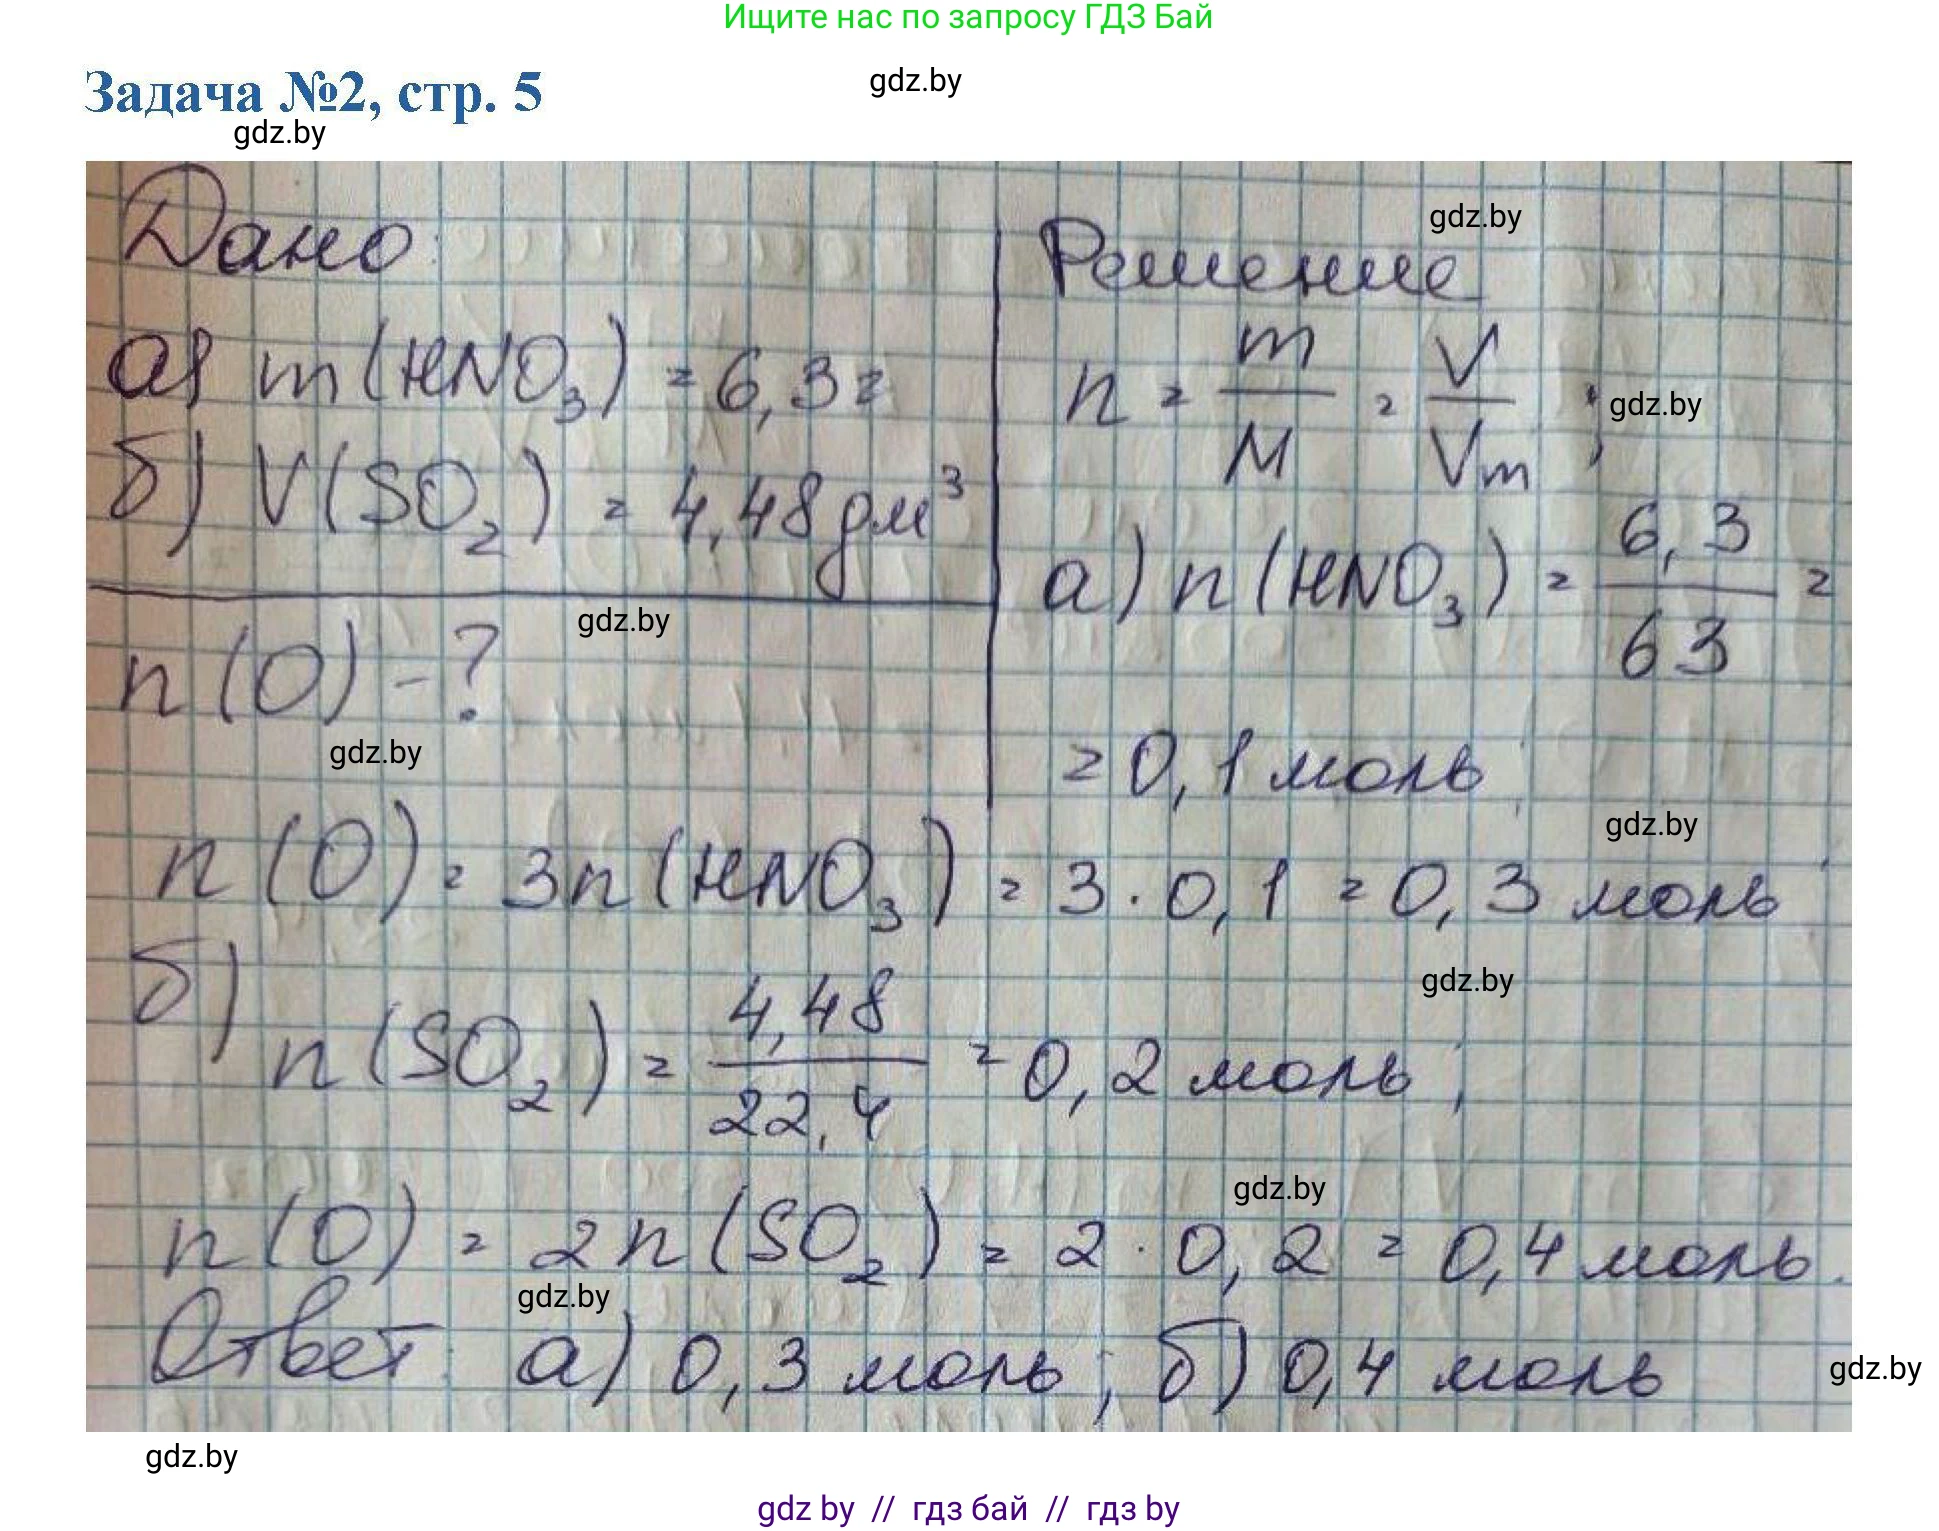 Ищите нас по запросу ГДЗ Бай
gdz.by
Задача №2, стр. 5
gdz.by
Дано:
а) m(HNO₃) = 6,3 г
б) V(SO₂) = 4,48 дм³
gdz.by
n(O) - ?
gdz.by
gdz.by
Решение
n = m/M = V/Vm ;
gdz.by
а) n(HNO₃) = 6,3/63 =
= 0,1 моль;
gdz.by
n(O) = 3n(HNO₃) = 3 · 0,1 = 0,3 моль;
gdz.by
б) n(SO₂) = 4,48/22,4 = 0,2 моль;
gdz.by
n(O) = 2n(SO₂) = 2 · 0,2 = 0,4 моль.
gdz.by
Ответ: а) 0,3 моль; б) 0,4 моль
gdz.by
gdz.by
gdz by // гдз бай // гдз by